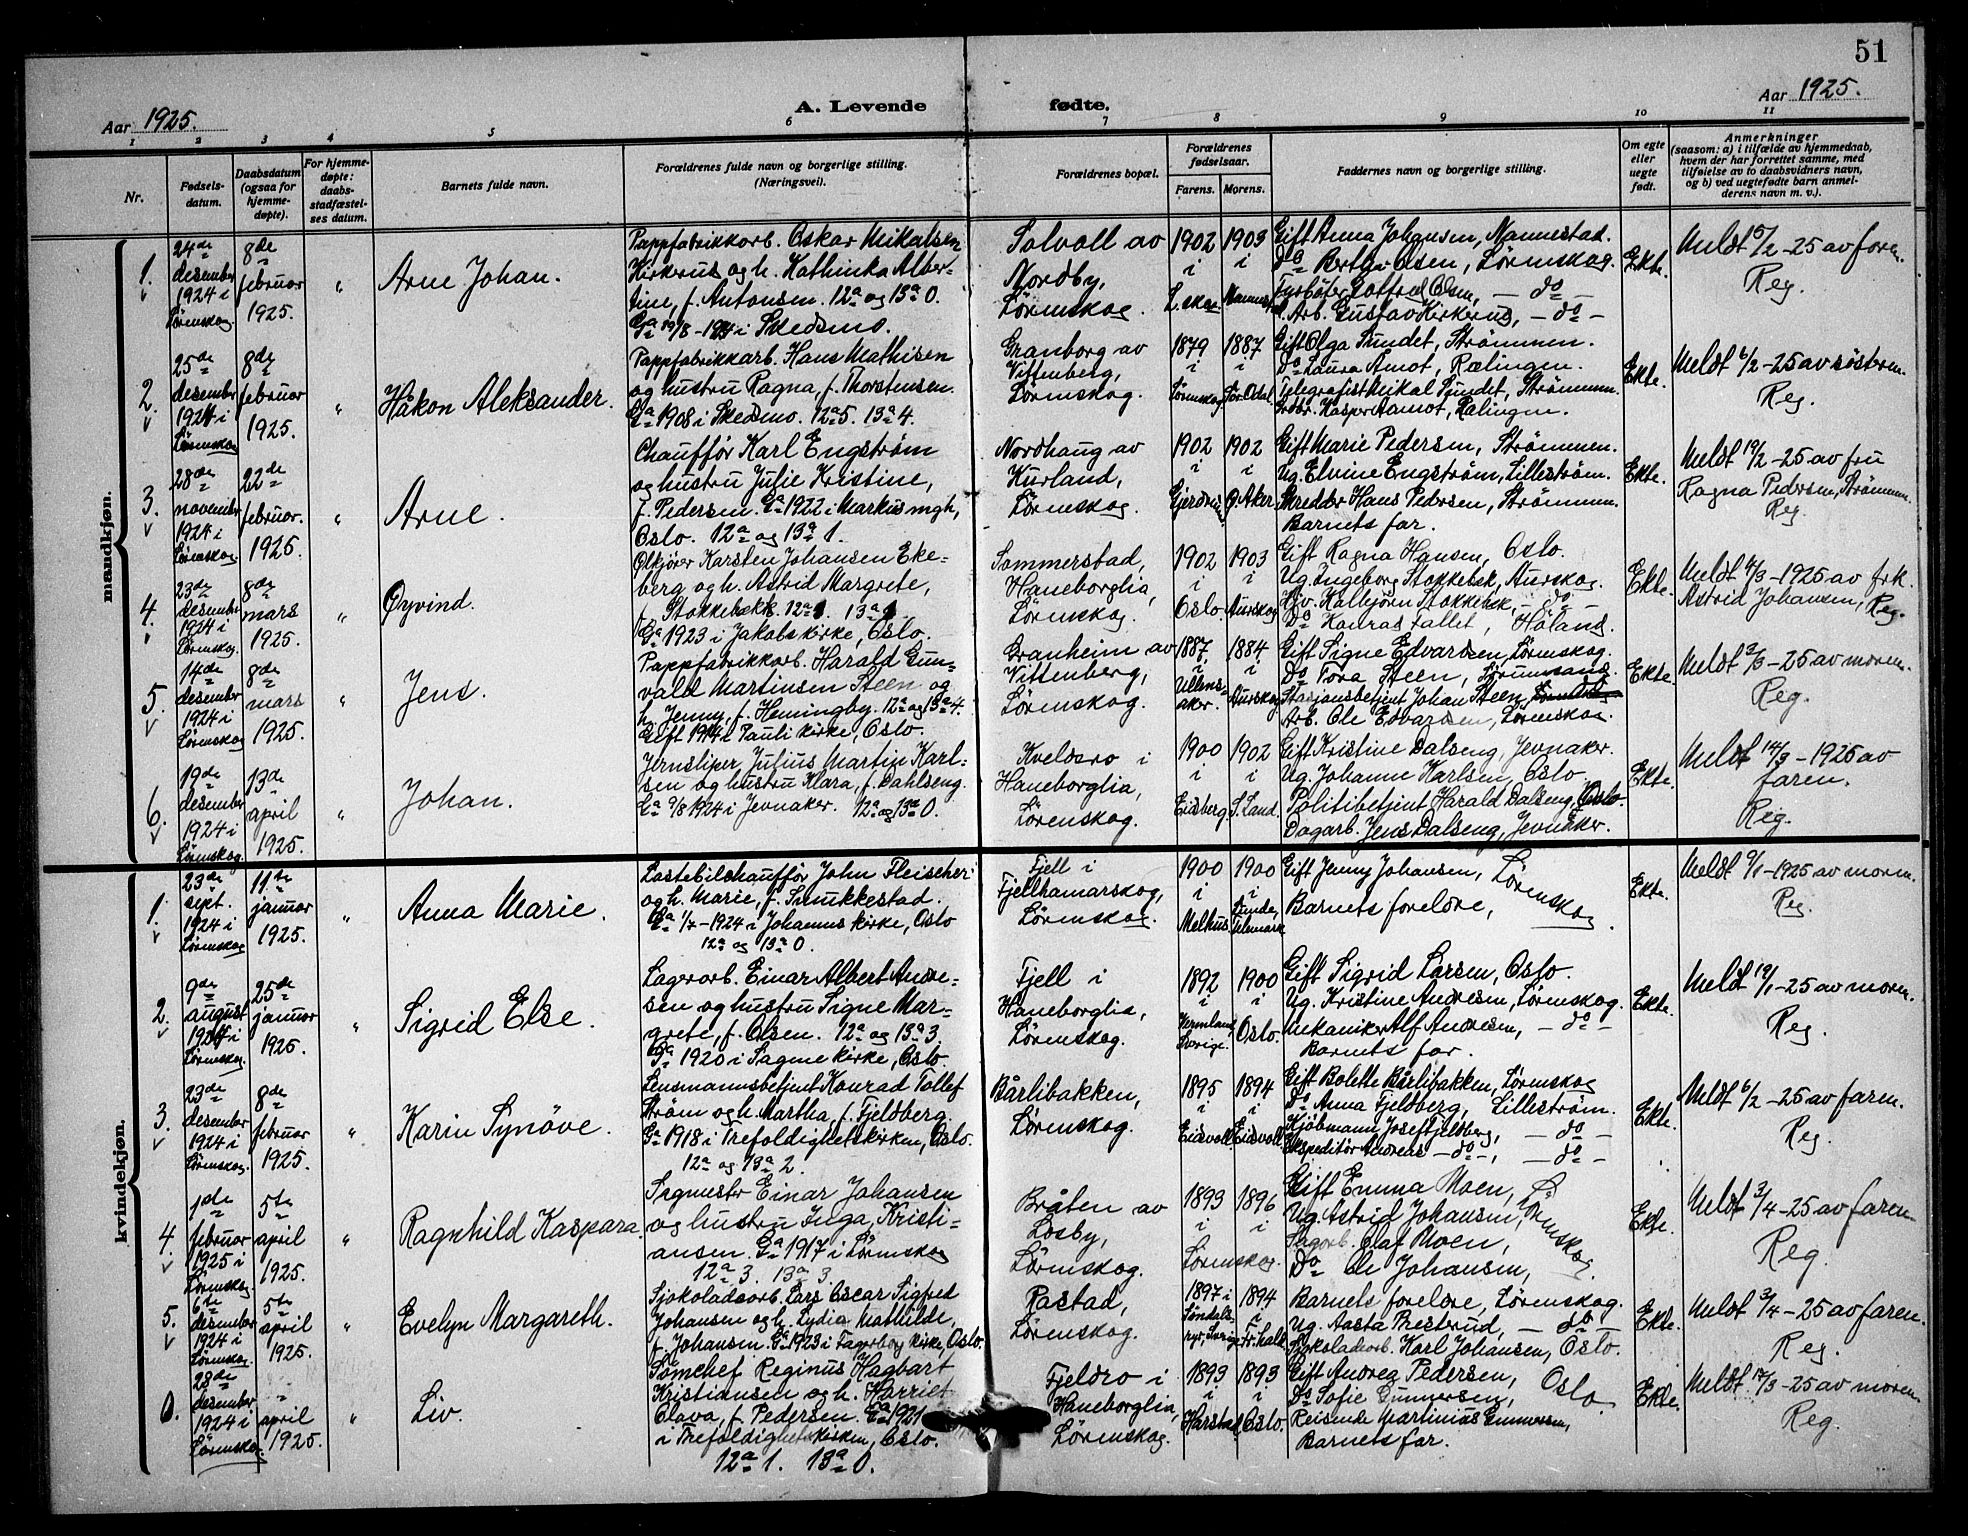 51
Aar 1925.
A. Levende fødte.
Aar 1925.
1 2 3 4 5 6 7 8 9 10 11
Nr.
Fødsels-
datum.
Daabsdatum
(ogsaa for
hjemme-
døpte).
For hjemme-
døpte:
daabs-
stadfæstel-
ses datum.
Barnets fulde navn.
Forældrenes fulde navn og borgerlige stilling.
(Næringsvei).
Forældrenes bopæl.
Forældrenes
fødselsaar.
Farens. Morens.
Faddernes navn og borgerlige stilling.
Om egte
eller
uegte
født.
Anmerkninger
(saasom: a) i tilfælde av hjemmedaab,
hvem der har forrettet samme, med
tilføielse av to daabsvidners navn,
og b) ved uegtefødte barn anmel-
derens navn m. v.).
mandkjøn.
1.
24de
desember
1924 i
Lørenskog.
8de
februar
1925.
"
Arne Johan.
Pappfabrikkarb. Oskar Mikalsen
Kirkerud og h. Kathinka Alber-
tine, f. Antonsen. 12a og 13a 0.
i Skedsmo.
Solvoll av
Nordby,
Lørenskog.
1902
i
1903
i
Gift Anna Johansen, Nannestad.
Do Berthe Olsen, Lørenskog.
Gotfred Olsen, — do —
Arb. Gustav Kirkerud, — do —
Ekte.
Meldt 5/2 - 25 av faren.
Reg.
2.
25de
desember
1924 i
Lørenskog
8de
februar
1925.
"
Håkon Aleksander.
Pappfabrikkarb. Hans Mathisen
og hustru Ragna, f. Thorstensen.
Ga 1908 i Skedsmo. 12a 5. 13a 4.
Granborg av
Vittenberg,
Lørenskog.
1879
i
Lørenskog
1887
i
Sør Odal.
Gift Olga Sundet, Strømmen.
Do Laura Aamot, Rælingen.
Telegrafist Mikal Sundet, Strømmen.
Grdbr. Kasper Aamot, Rælingen.
Ekte.
Meldt 6/2 - 25 av søsteren.
Reg.
3.
28de
november
1924 i
Lørenskog
22de
februar.
1925.
"
Arne.
Chauffør Karl Engstrøm
og hustru Julie Kristine,
f. Pedersen. Ga 1922 i Markus mgh,
Oslo. 12a og 13a 1.
Nordhaug av
Kurland,
Lørenskog.
1902
i
Gjerdrum
1902
i
Ø. Aker.
Gift Marie Pedersen, Strømmen.
Ug. Elvine Engstrøm, Lillestrøm.
Skredder Hans Pedersen, Strømmen.
Barnets far.
Ekte.
Meldt 19/2 - 25 av fru
Ragna Pedersen, Strømmen.
Reg.
4.
23de
desember
1924 i
Lørenskog.
8de
mars
1925.
"
Øyvind.
Ølkjører Karsten Johansen Eke-
berg og h. Astrid Margrete,
f. Stokkebækk. 12a 1. 13a
Ga 1923 i Jakobs kirke, Oslo.
Sommerstad,
Haneborglia,
Lørenskog.
1902
i
Oslo.
1903
i
Aurskog
Gift Ragna Hansen, Oslo.
Ug. Ingeborg Stokkebek, Aurskog.
Hjv. Hallbjørn Stokkebek, — do —
Do Konrad Fallet, Høland.
Ekte.
Meldt 4/3 - 1925 av frk.
Astrid Johansen, Reg.
5.
14de
desember
1924 i
Lørenskog
8de
mars
1925.
"
Jens.
Pappfabrikkarb. Harald Gun-
vald Martinsen Steen og
h. Jenny, f. Hemingby. 12a og 13a 4.
Gift 1914 i Pauli kirke, Oslo.
Granheim av
Vittenberg,
Lørenskog.
1887
i
Ullens-
aker.
1884
i
Aurskog
Gift Signe Edvardsen, Lørenskog.
Do Tora Steen, Sørumsand.
Stasjonsbetjent Johan Steen,
Arb. Ole Edvardsen, Lørenskog.
Ekte.
Meldt 3/3 - 25 av moren.
Reg.
6.
19de
desember
1924 i
Lørenskog.
13de
april
1925.
"
Johan.
Jernsliper Julius Martin Karl-
sen og hustru Klara, f. Dahlseng.
Ga 9/8 1924 i Jevnaker. 12a og 13a 0.
Kveldsro i
Haneborglia,
Lørenskog.
1900
i
Eidsberg
1902
i
S. Land.
Gift Kristine Dalseng, Jevnaker.
Ug. Johanne Karlsen, Oslo.
Politibetjent Harald Dalseng, Oslo.
Dagarb. Jens Dalseng, Jevnaker.
Ekte.
Meldt 14/3 - 1925 av
faren.
Reg.
kvindekjøn.
1.
23de
sept.
1924 i
Lørenskog
11te
januar
1925.
"
Anna Marie.
Lastebilchauffør John Fleischer
og h. Marie, f. Smukkestad.
Ga 1/7 - 1924 i Johannes kirke, Oslo
12a og 13a 0.
Fjell i
Fjellhamarskog,
Lørenskog.
1900
i
Melhus
1900
i
Lunde,
Telemark
Gift Jenny Johansen,
Barnets foreldre,
Lørenskog
Ekte.
Meldt 9/1 - 1925 av moren.
Reg.
2.
9de
august
1924 i
Lørenskog.
25de
januar
1925.
"
Sigrid Else.
Lagerarb. Einar Albert Andre-
sen og hustru Signe Mar-
grete, f. Olsen. 12a og 13a 3.
Ga 1920 i Sagene kirke, Oslo.
Fjell i
Haneborglia,
Lørenskog.
1892
i
Vermland,
Sverige.
1900
i
Oslo.
Gift Sigrid Larsen, Oslo.
Ug. Kristine Andresen, Lørenskog.
Mekaniker Alf Andresen, — do —
Barnets far.
Ekte.
Meldt 19/1 - 25 av moren.
Reg.
3.
23de
desember
1924 i
Lørenskog.
8de
februar
1925.
"
Karin Synøve.
Lensmannsbetjent Konrad Tollef
Strøm og h. Martha, f. Fjeldberg.
Ga 1918 i Trefoldighetskirken, Oslo.
12a og 13a 2.
Bårlibakken,
Lørenskog.
1895
i
Eidsvoll
1894
i
Eidsvoll
Gift Bolette Bårlibakken, Lørenskog
Do Anna Fjeldberg, Lillestrøm.
Kjøbmann Josef Fjeldberg, — do —
Ekspeditør Andreas — do —, — do —
Ekte.
Meldt 6/2 - 25 av faren.
Reg.
4.
1de
februar
1925 i
Lørenskog.
5te
april
1925.
"
Ragnhild Kaspara.
Sagmester Einar Johansen
og hustru Inga, Kristi-
ansen. Ga 1917 i Lørenskog
12a 3. 13a 3
Bråten av
Losby,
Lørenskog.
1893
i
1896
i
Lørenskog.
Gift Emma Moen,
Ug. Astrid Johansen,
Sagarb. Olaf Moen,
Do Ole Johansen,
Lørenskog
Ekte.
Meldt 3/4 - 25 av faren.
Reg.
5.
6te
desember
1924 i
Lørenskog.
5te
april
1925.
"
Evelyn Margareth.
Sjokoladearb. Lars Oscar Sigfred
Johansen og h. Lydia Mathilde,
f. Johansen. Ga 1923 i Fagerborg kirke, Oslo.
Rastad,
Lørenskog.
1897 i
1894
i
Fr.hald
Barnets foreldre, Lørenskog.
Ug. Aasta Presterud, — do —
Sjokoladearb. Karl Johansen, Oslo.
Ekte.
Meldt 3/4 - 25 av faren.
Reg.
6.
28de
desember
1924 i
Lørenskog
"
april
1925.
"
Liv.
Reginus Hagbart
Kristiansen og h. Harriet
Olava, f. Pedersen. Ga 1921
i Trefoldighetskirken, Oslo.
12a 1. 13a 0.
Fjeldro i
Haneborglia,
Lørenskog.
1893
i
Harstad
1893
i
Oslo.
Gift Andrea Pedersen,
Do Sofie Gunnersen,
Oslo
Reisende Martinius Gunnersen,
Barnets far.
Ekte.
Meldt 17/3 - 25 av moren.
Reg.